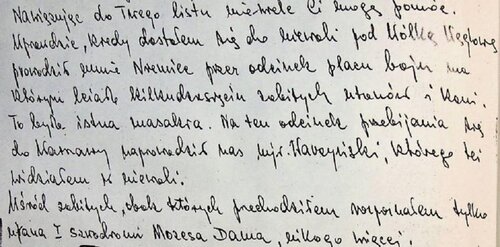 Nawiązując do Twego listu niewiele Ci mogę pomóc.
Wprawdzie, kiedy dostałem się do niewoli pod Wólką Węglową
prowadził mnie Niemiec przez odcinek placu boju na
którym leżało kilkudziesięciu zabitych ułanów i koni.
To była istna masakra. Na ten odcinek przebijania się
do Warszawy naprowadził nas mjr. , którego też
widziałem w niewoli.
Wśród zabitych, obok których przechodziłem rozpoznałem tylko
ułana I szwadronu Mozesa Dama, nikogo więcej.